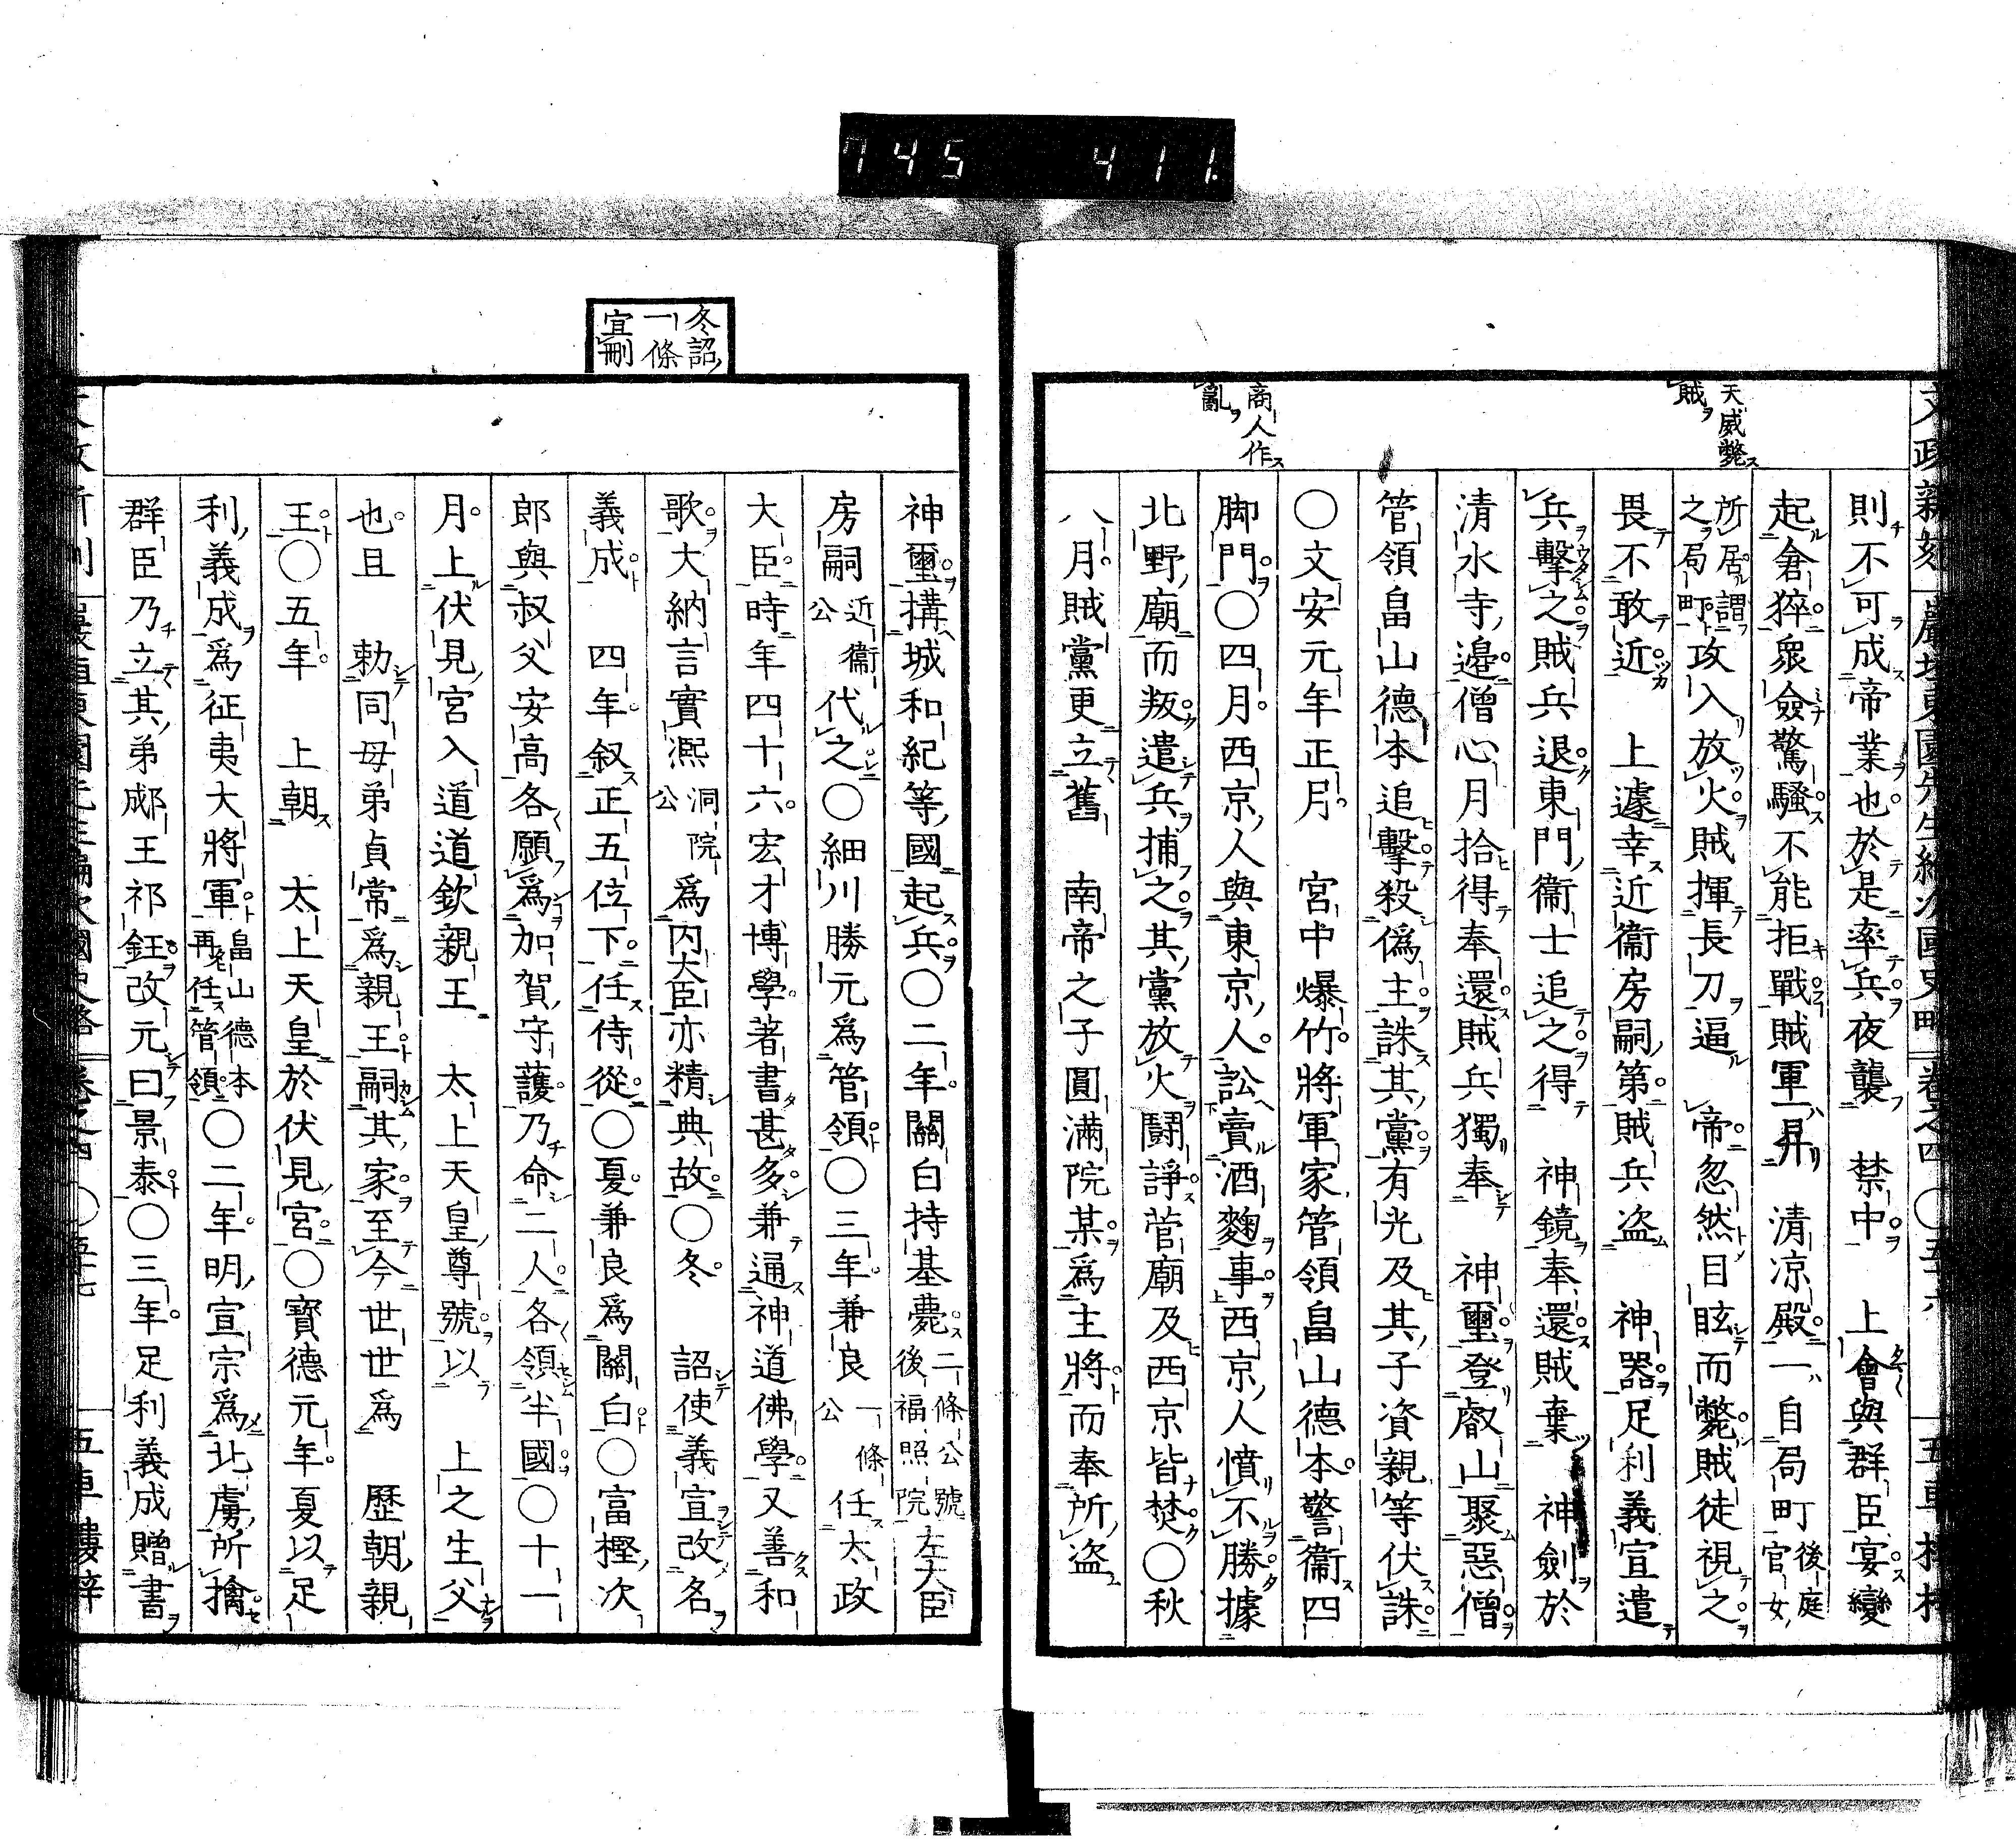 745 411.
文政新刻 巖垣東園先生編次國史略 卷之四 〇五十六 五車樓梓
天威斃ス
賊ヲ
商人作ス
亂ヲ
則不可成帝業也於是率兵夜襲 禁中 上會與群臣宴變
起倉猝衆僉驚騷不能拒戰賊軍一昇 清凉殿一自局町後庭官女
所居謂之局町攻入放火賊揮長刀逼 帝忽然目眩而斃賊徒視之
畏不敢近 上遽幸近衞房嗣第賊兵盗 神器足利義宣遣
兵擊之賊兵退東門衞士追之得 神鏡奉還賊棄 神劍於
清水寺邊僧心月拾得奉還賊兵獨奉 神璽登叡山聚惡僧
管領畠山德本追擊殺僞主誅其黨有光及其子資親等伏誅
〇文安元年正月 宮中爆竹將軍家管領畠山德本警衞四
脚門〇四月西京人與東京人訟賣酒麴事西京人憤不勝據
北野廟而叛遣兵捕之其黨放火鬪諍菅廟及西京皆焚〇秋
八月賊黨更立舊 南帝之子圓滿院某爲主將而奉所盗
冬詔
一條
宜刪
神璽搆城和紀等國起兵〇二年關白持基薨二條公號後福照院左大臣
房嗣近衞公代之〇細川勝元爲管領〇三年兼良一條公任太政
大臣時年四十六宏才博學著書甚多兼通神道佛學又善和
歌大納言實凞洞院公爲内大臣亦精典故〇冬 詔使義宣改名
義成 四年叙正五位下任侍從〇夏兼良爲關白〇富樫次
郎與叔父安高各願爲加賀守護乃命二人各領半國〇十一
月上伏見宮入道道欽親王 太上天皇尊號以 上之生父
也且 勅同母弟貞常爲親王嗣其家至今世世爲 歷朝親
王〇五年 上朝 太上天皇於伏見宮〇寶德元年夏以足
利義成爲征夷大將軍畠山德本再任管領〇二年明宣宗爲北虜所擒
群臣乃立其弟郕王祁鈺改元曰景泰〇三年足利義成贈書
文政新刻 巖垣東園先生編次國史略 卷之四 〇五十七 五車樓梓